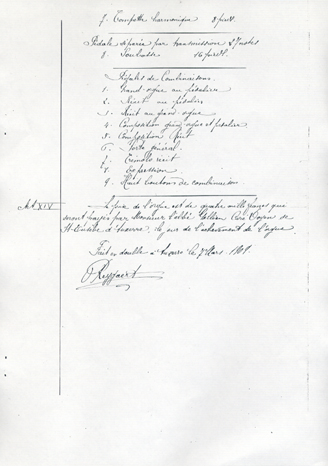 7. Trompette harmonique 8 pieds
Pédale séparée par transmission 8 Notes
8. Soubasse 16 pieds
Pédales de Combinaisons
1. Grand orgue au pédalier
2. Récit au pédalier
3. Récit au grand orgue
4. Composition grand orgue et pédalier
5. Composition Récit
6. Forte général
7. Trémolo récit
8. Expression
9. Huit boutons de combinaison
Art XIV Le prix de l'orgue est de quatre mille francs que
seront payés par Monsieur l'abbé Curé Doyen de
St le jour de l'achèvement de l'orgue
Fait en double à le 7 Mars 1901.